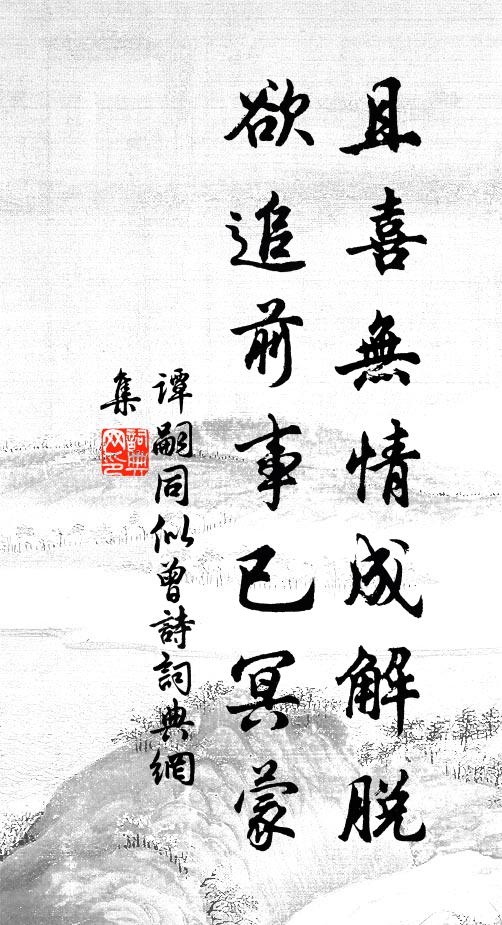 且喜無情成解脫
欲追前事已冥蒙
譚嗣同似曾詩詞典網
集
詞典網印